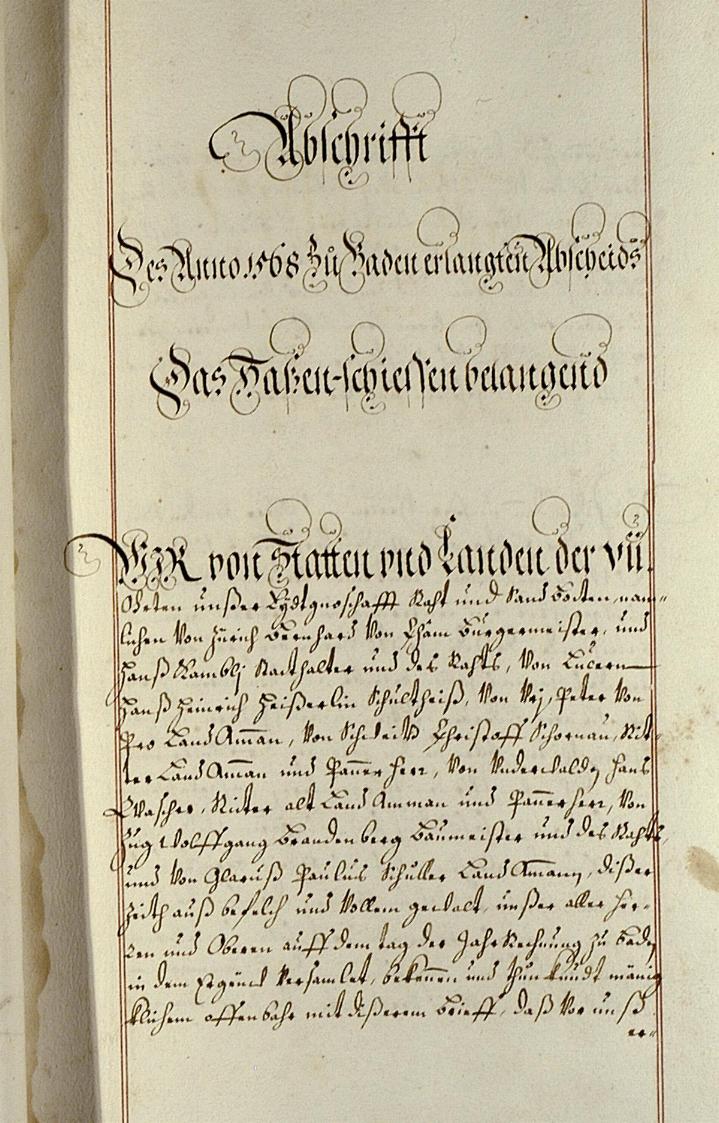 Abschrifft
Des Anno 1568 Zů Baden erlangten Abscheids
Das Taßen-schiessen belangend
WIR von Stätten vnd Landen der VII.
Ohrten unßer Eydtgnoschafft Räht und Sand Botten, nam-
lichen Von Zürich Bernhard Von Chäm Burgermeister, und
Hanß Kamblj Statthalter und des Rahts, Von Lucern
Hanß Heinrich Heißerlin Schultheiß, Von Vrj, Peter Von
Pro Land Aman, Von Schweitz Christoff Schornau, Rit-
ter Land Aman und Panner Herr, Von Vnderwalden Hans
Waser, Ritter alt Land Amman und Panerherr, Von
Zug Wolffgang Brandenberg Baumeister und des Rahts,
und Von Glaruß Paulus Schuller Land Aman, dißer
Zeith auß befelch und Vollem gewalt, unßer aller Her-
ren und Oberen auff dem tag der Jahr Rechnung zu Baden
in dem Ergeüw Versamlet, bekennen und thun kundt mänig-
klichem offenbahr mit dißerem brieff, daß Vor unß
er-